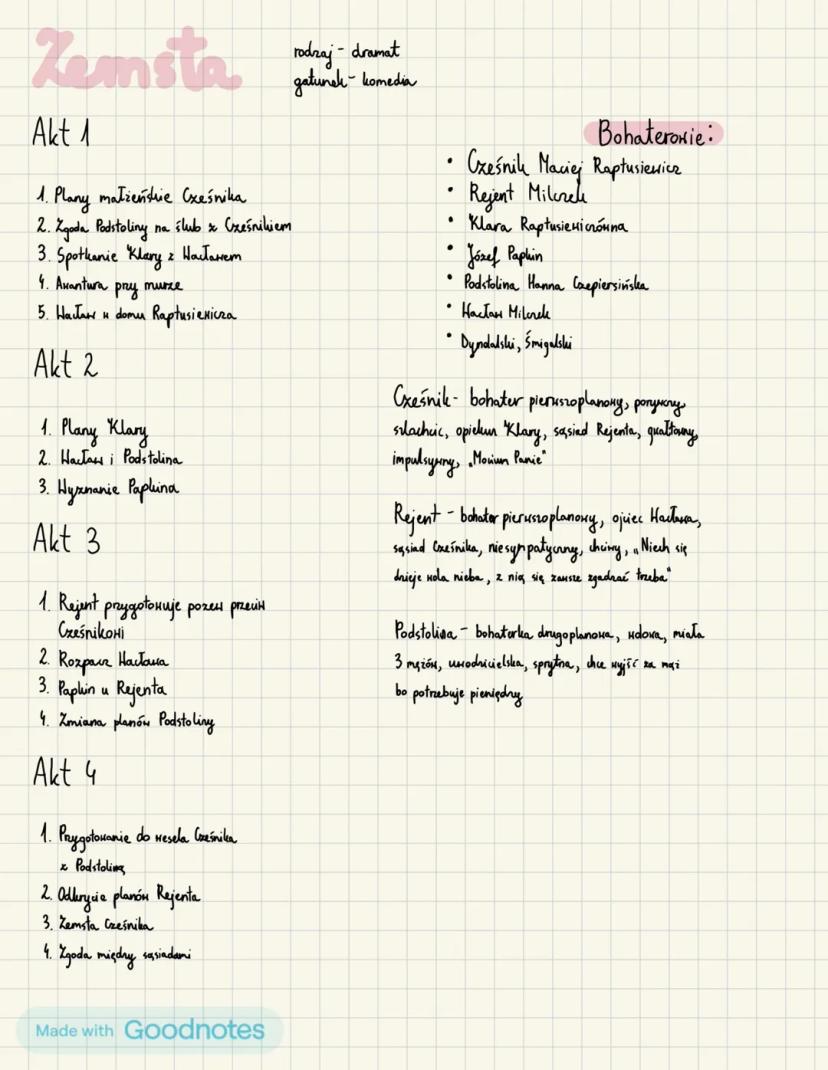 Zemsta
rodzaj - dramat
gatunek - komedia
Akt 1
1. Plany małżeńskie Cześnika
2. Zgoda Podstoliny na ślub z Cześnikiem
3. Spotkanie Klary z Wacławem
4. Awantura przy murze
5. Wacław w domu Raptusiewicza
Akt 2
1. Plany Klary
2. Wacław i Podstolina
3. Wyznanie Papkina
Akt 3
1. Rejent przygotowuje pozew przeciw
Cześnikowi
2. Rozpacz Wacława
3. Papkin u Rejenta
4. Zmiana planów Podstoliny
Akt 4
1. Przygotowanie do wesela Cześnika
z Podstoliną
2. Odkrycie planów Rejenta
3. Zemsta Cześnika
4. Zgoda między sąsiadami
Bohaterowie:
• Cześnik Maciej Raptusiewicz
• Rejent Milczek
• Klara Raptusiewiczówna
• Józef Papkin
• Podstolina Hanna Czepiersińska
• Wacław Milczek
• Dyndalski, Śmigalski
Cześnik - bohater pierwszoplanowy, porywczy
szlachcic, opiekun Klary, sąsiad Rejenta, gwałtowny,
impulsywny, „Mocium Panie"
Rejent - bohater pierwszoplanowy, ojciec Wacława,
sąsiad Cześnika, niesympatyczny, chciwy, „Niech się
dzieje wola nieba, z nią się zawsze zgadzać trzeba"
Podstolina - bohaterka drugoplanowa, wdowa, miała
3 mężów, uwodzicielska, sprytna, chce wyjść za mąż
bo potrzebuje pieniędzy
Made with Goodnotes